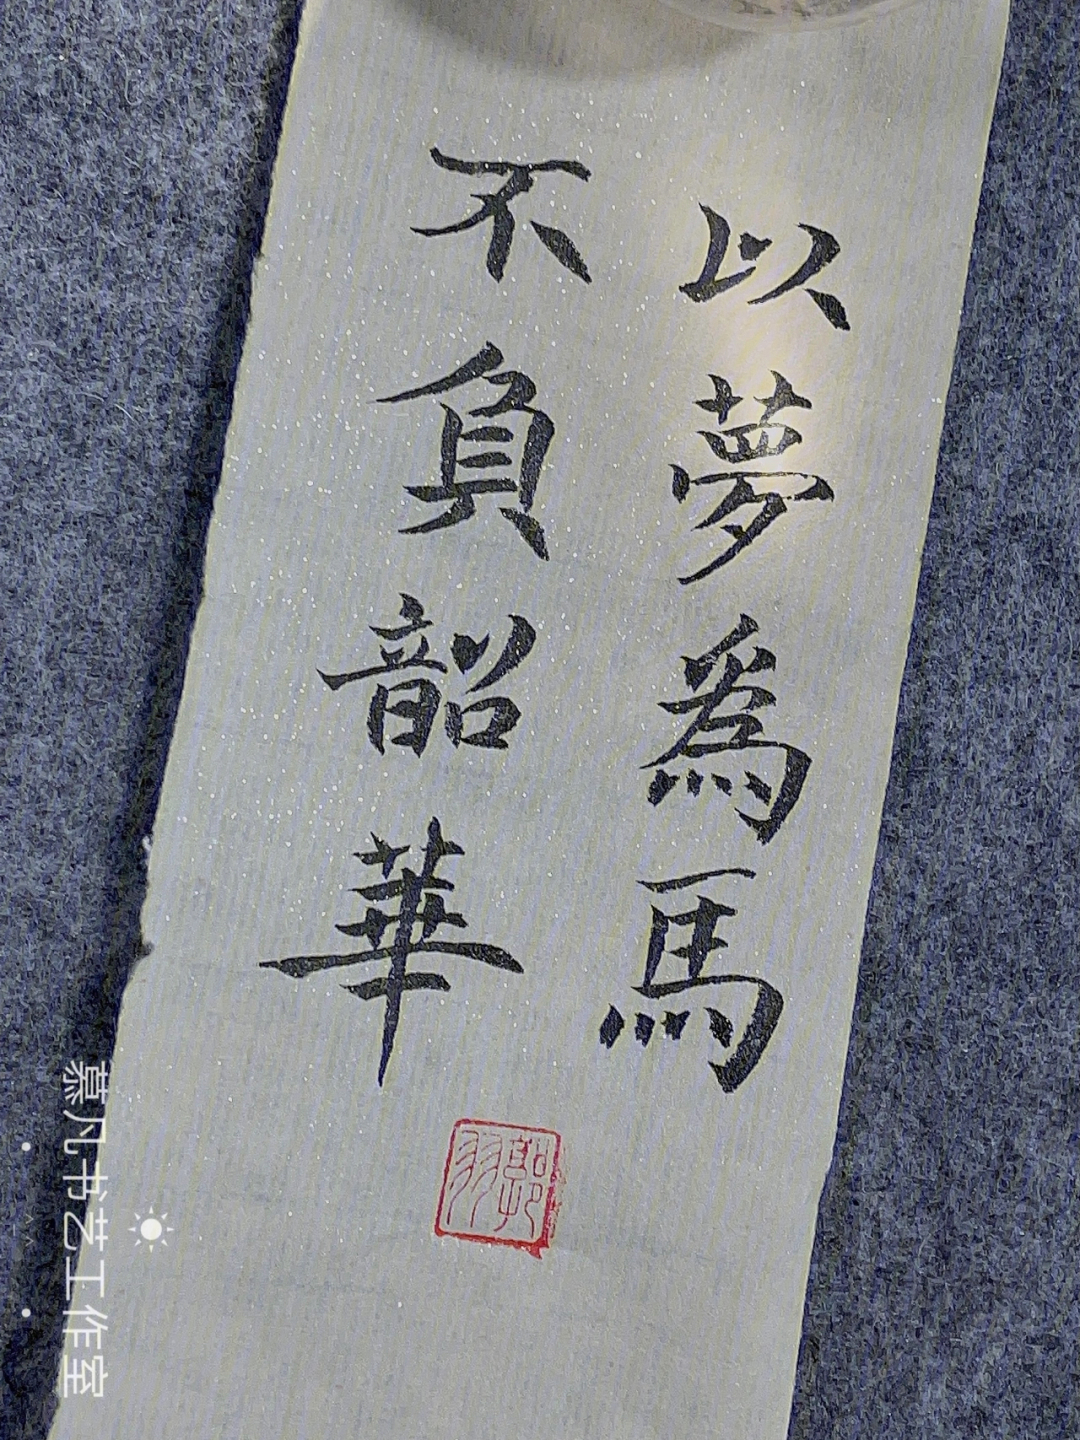 以夢為馬
不負韶華
郭羽
慕凡书艺工作室